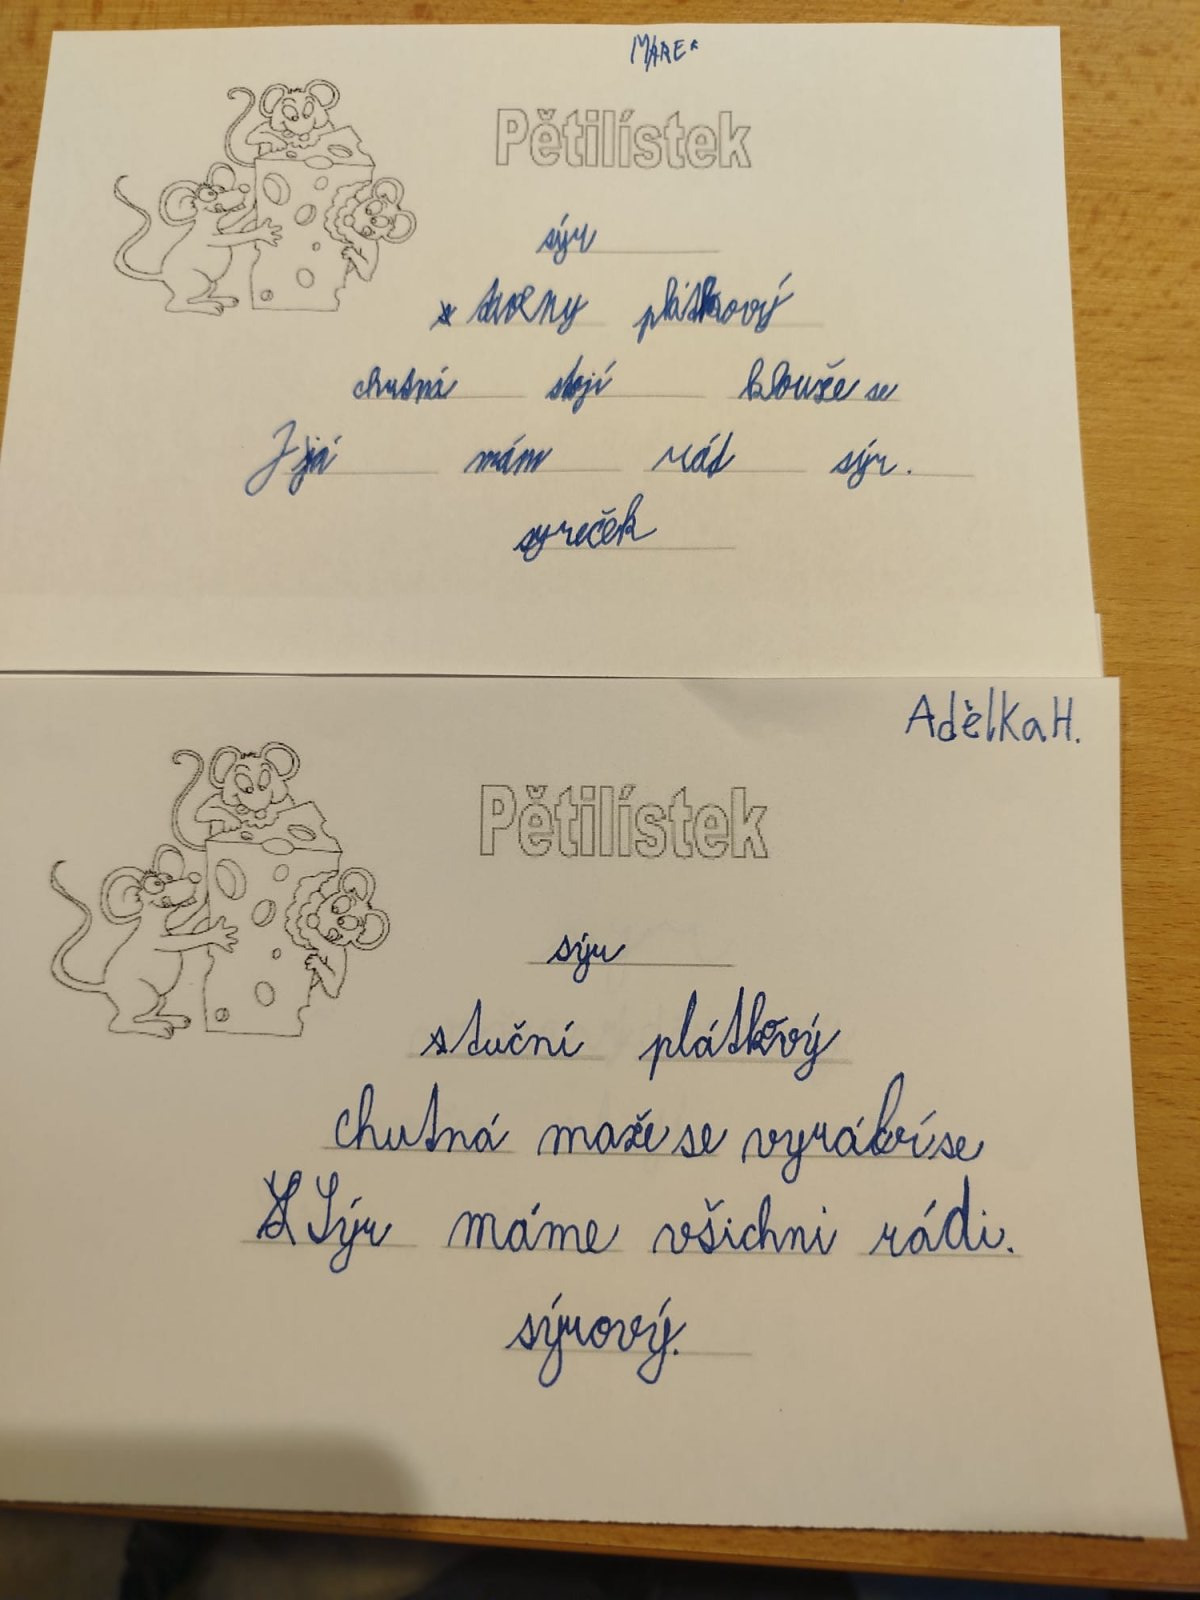 MAREK
Pětilístek
sýr
plátkový
chutná stojí klouže se
já mám rád sýr.
syreček
Adèlka H.
Pětilístek
sýr
stuční plátkový
chutná maže se vyrábí se
Sýr máme všichni rádi.
sýrový.